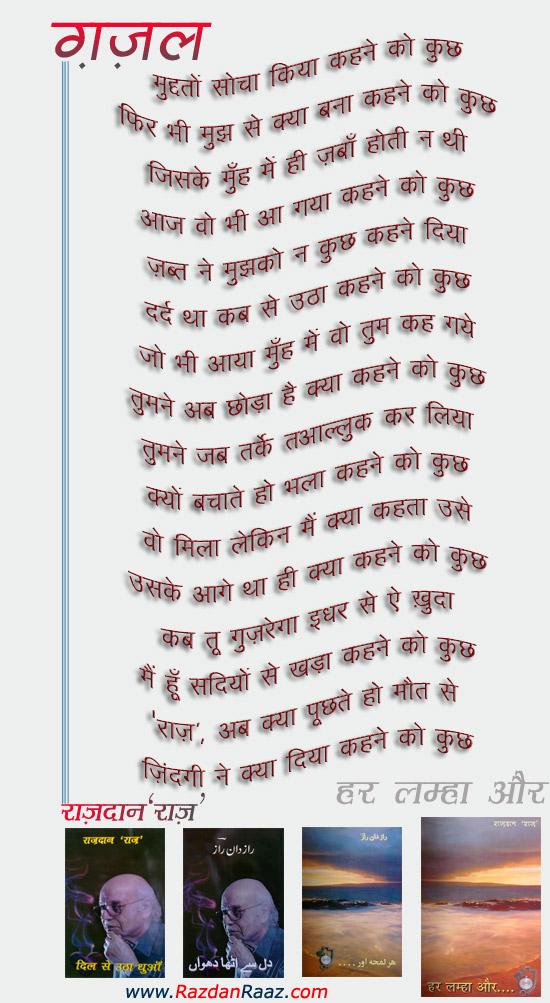 ग़ज़ल
मुद्दतों सोचा किया कहने को कुछ
फिर भी मुझ से क्या बना कहने को कुछ
जिसके मुँह में ही ज़बाँ होती न थी
आज वो भी आ गया कहने को कुछ
ज़ब्त ने मुझको न कुछ कहने दिया
दर्द था कब से उठा कहने को कुछ
जो भी आया मुँह में वो तुम कह गये
तुमने अब छोड़ा है क्या कहने को कुछ
तुमने जब तर्के तआल्लुक कर लिया
क्यों बचाते हो भला कहने को कुछ
वो मिला लेकिन मैं क्या कहता उसे
उसके आगे था ही क्या कहने को कुछ
कब तू गुज़रेगा इधर से ऐ ख़ुदा
मैं हूँ सदियों से खड़ा कहने को कुछ
'राज़', अब क्या पूछते हो मौत से
ज़िंदगी ने क्या दिया कहने को कुछ
हर लम्हा और
राज़दान 'राज़'
राज़दान 'राज़'
दिल से उठा धुआँ
راز دان راز
دل سے اٹھا دھواں
راز دان راز
ہر لمحہ اور....
राज़दान 'राज़'
हर लम्हा और....
www.RazdanRaaz.com